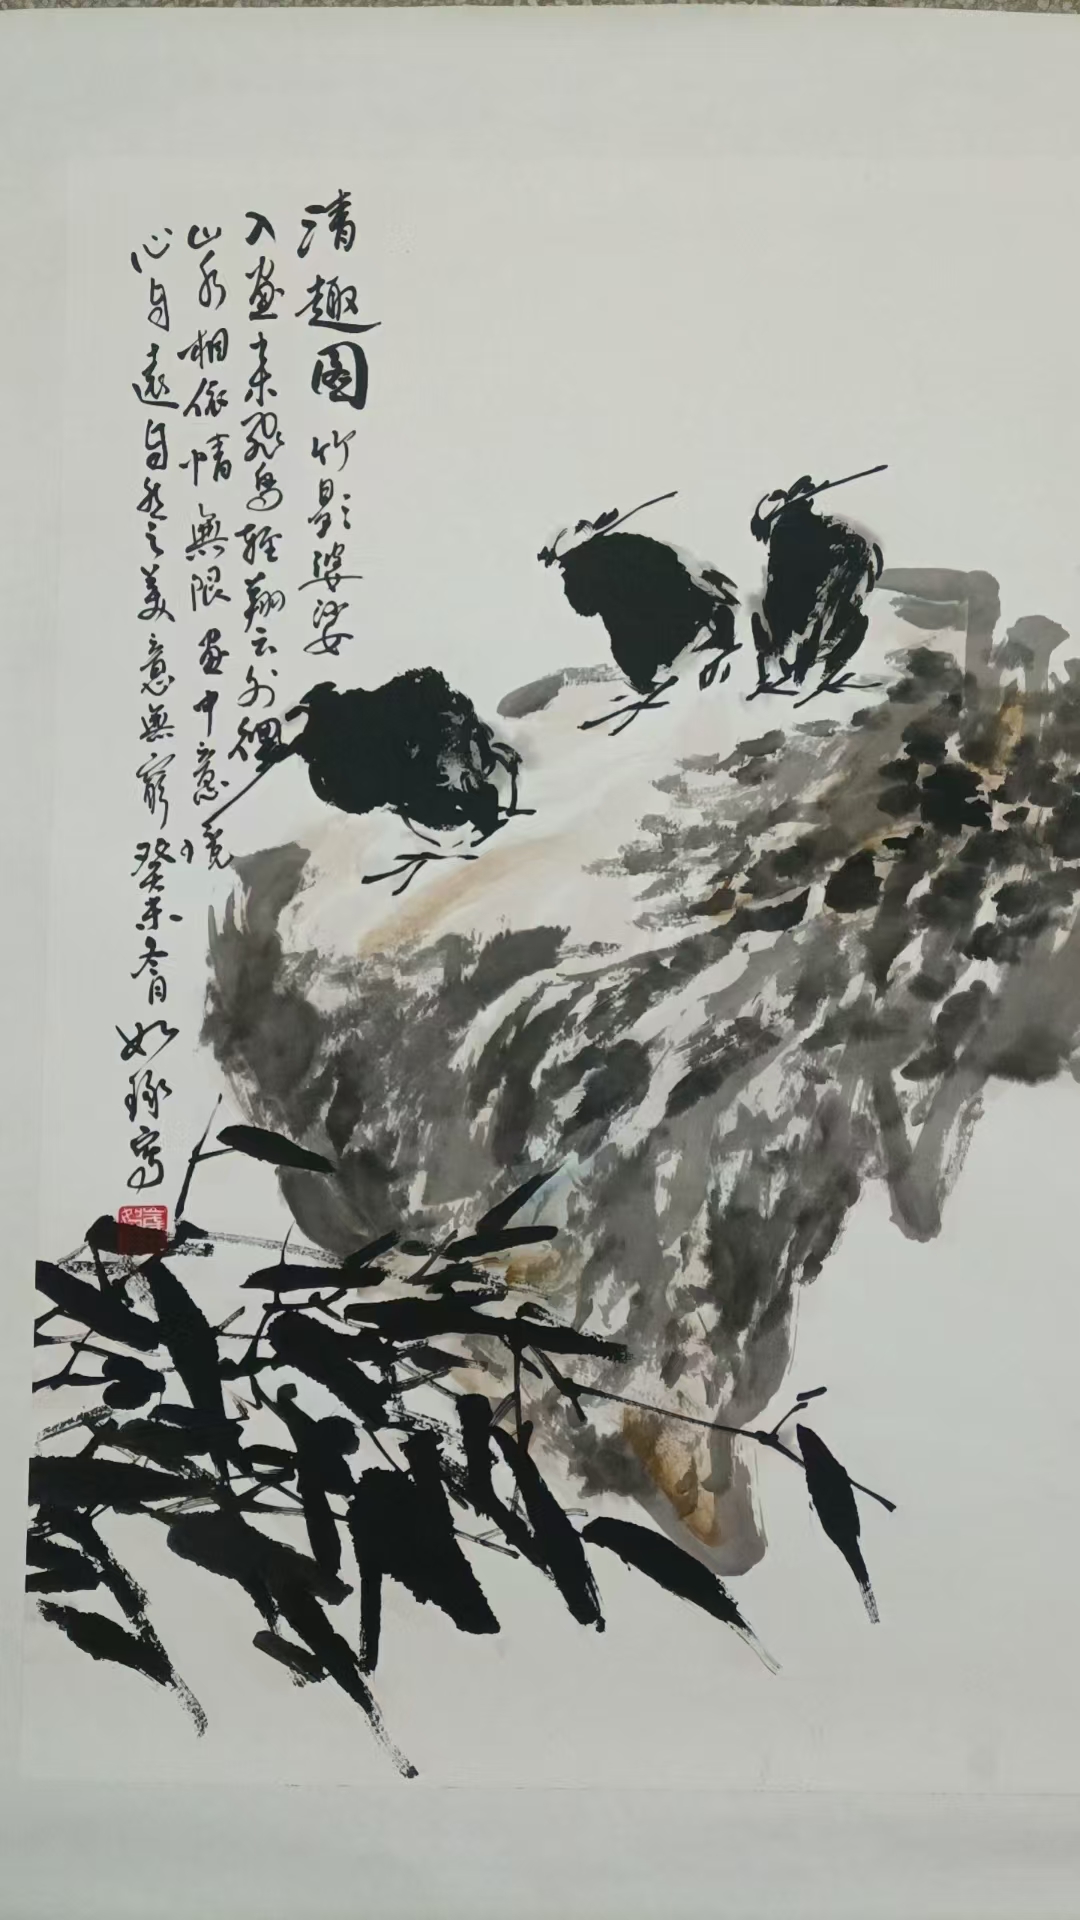 清趣图 竹影婆娑
入画来飛鸟轻翔云外
山水相依情無限画中意境
心自遠自然之美意無窮癸未冬月
如琢寫